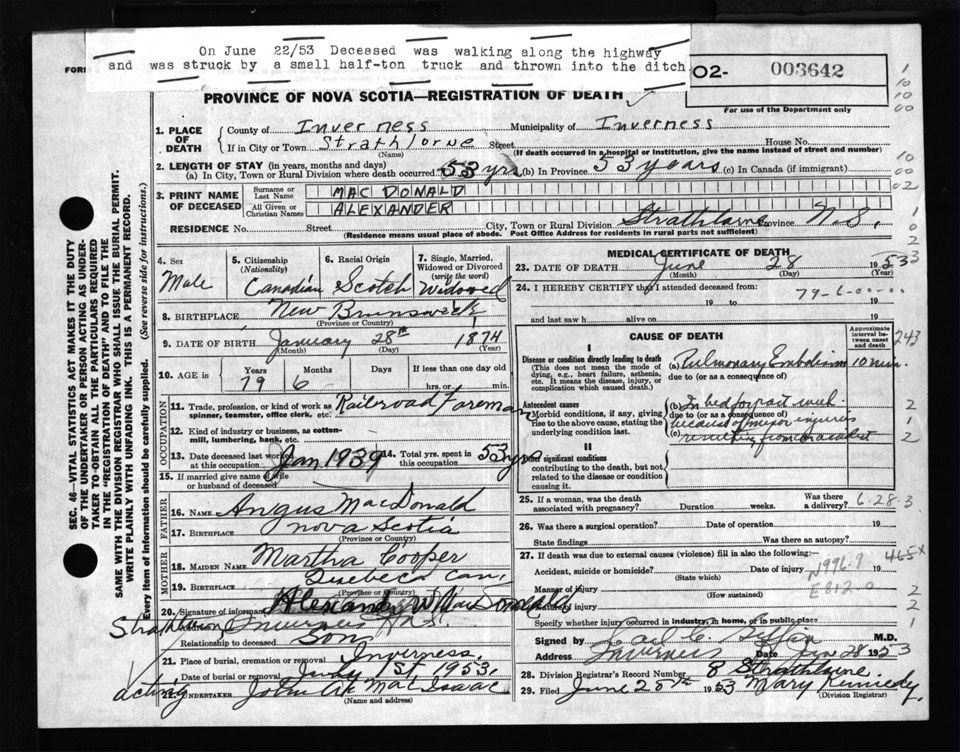 On June 22/53 Deceased was walking along the highway
and was struck by a small half-ton truck and thrown into the ditch
FORM
O2- 003642
For use of the Department only
PROVINCE OF NOVA SCOTIA—REGISTRATION OF DEATH
1. PLACE OF DEATH
County of Inverness Municipality of Inverness
If in City or Town Strathlorne Street House No.
(Name) (If death occurred in a hospital or Institution, give the name instead of street and number)
2. LENGTH OF STAY (in years, months and days)
(a) In City, Town or Rural Division where death occurred 53 yrs (b) In Province 53 years (c) In Canada (if immigrant)
3. PRINT NAME OF DECEASED
Surname or Last Name MAC DONALD
All Given or Christian Names ALEXANDER
RESIDENCE No. Street City, Town or Rural Division Strathlorne Province N.S.
(Residence means usual place of abode. Post Office Address for residents in rural parts not sufficient)
SEC. 46—VITAL STATISTICS ACT MAKES IT THE DUTY
OF THE UNDERTAKER OR PERSON ACTING AS UNDER-
TAKER TO OBTAIN ALL THE PARTICULARS REQUIRED
IN THE "REGISTRATION OF DEATH" AND TO FILE THE
SAME WITH THE DIVISION REGISTRAR WHO SHALL ISSUE THE BURIAL PERMIT.
WRITE PLAINLY WITH UNFADING INK. THIS IS A PERMANENT RECORD.
Every item of information should be carefully supplied. (See reverse side for instructions.)
4. Sex Male
5. Citizenship (Nationality) Canadian
6. Racial Origin Scotch
7. Single, Married, Widowed or Divorced (write the word) Widowed
8. BIRTHPLACE New Brunswick
(Province or Country)
9. DATE OF BIRTH January 28th 1874
(Month) (Day) (Year)
10. AGE in Years 79 Months 6 Days If less than one day old
hrs. or min.
OCCUPATION
11. Trade, profession, or kind of work as spinner, teamster, office clerk, etc. Railroad Foreman
12. Kind of industry or business, as cotton-mill, lumbering, bank, etc.
13. Date deceased last worked at this occupation Jan 1939 14. Total yrs. spent in this occupation 53 yrs
15. If married give name of wife or husband of deceased
FATHER
16. NAME Angus MacDonald
17. BIRTHPLACE Nova Scotia
(Province or Country)
MOTHER
18. MAIDEN NAME Martha Cooper
19. BIRTHPLACE Quebec Can.
(Province or Country)
20. Signature of informant Alexander W MacDonald
Strathlorne, Inverness N.S.
Relationship to deceased Son
21. Place of burial, cremation or removal Inverness
Date of burial or removal July 1st, 1953.
acting UNDERTAKER John MacIsaac
(Name and address)
MEDICAL CERTIFICATE OF DEATH
23. DATE OF DEATH June 28 1953
(Month) (Day) (Year)
24. I HEREBY CERTIFY that I attended deceased from:
79-6-00-00
19 to 19
and last saw h alive on 19
CAUSE OF DEATH
Approximate interval between onset and death
243
I
Disease or condition directly leading to death
(This does not mean the mode of dying, e.g., heart failure, asthenia, etc. It means the disease, injury, or complication which caused death.)
(a) Pulmonary Embolism 10 min.
due to (or as a consequence of)
Antecedent causes
Morbid conditions, if any, giving rise to the above cause, stating the underlying condition last.
(b) In bed for past week
due to (or as a consequence of)
because of major injuries
(c) resulting from accident
II
Other significant conditions
contributing to the death, but not related to the disease or condition causing it.
25. If a woman, was the death associated with pregnancy? Duration weeks. Was there a delivery? 6-28-3
26. Was there a surgical operation? Date of operation 19
State findings Was there an autopsy?
27. If death was due to external causes (violence) fill in also the following:
465X
Accident, suicide or homicide? Date of injury 19
(State which)
N996.9
Manner of injury E812.0
(How sustained)
Nature of injury
Specify whether injury occurred in industry, in home, or in public place
Signed by M.D.
Address Inverness Date June 28 1953
28. Division Registrar's Record Number 8 Strathlorne
29. Filed June 28th 1953 Mary Kennedy
(Division Registrar)